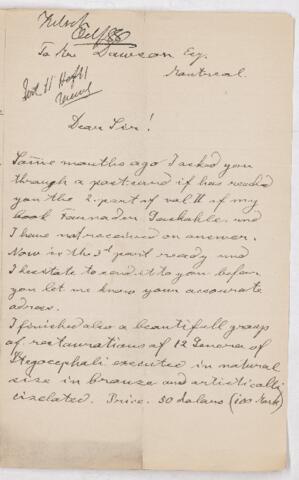 To Mr Dawson Esq.
Montreal.
Dear Sir!
Some months ago I asked you
through a postcard if has reached
you the 2. part of vol II of my
book Fauna der Gaskohle, and
I have not received an answer.
Now is the 3d part ready and
I hesitate to send it to you before
you let me know your accourate
adress.
I finished also a beautifull group
of restaurations of 12 Genera of
Stegocephali executed in natural
size in bronze and artistically
cizelated. Price. 50 dolars (100 Mark)